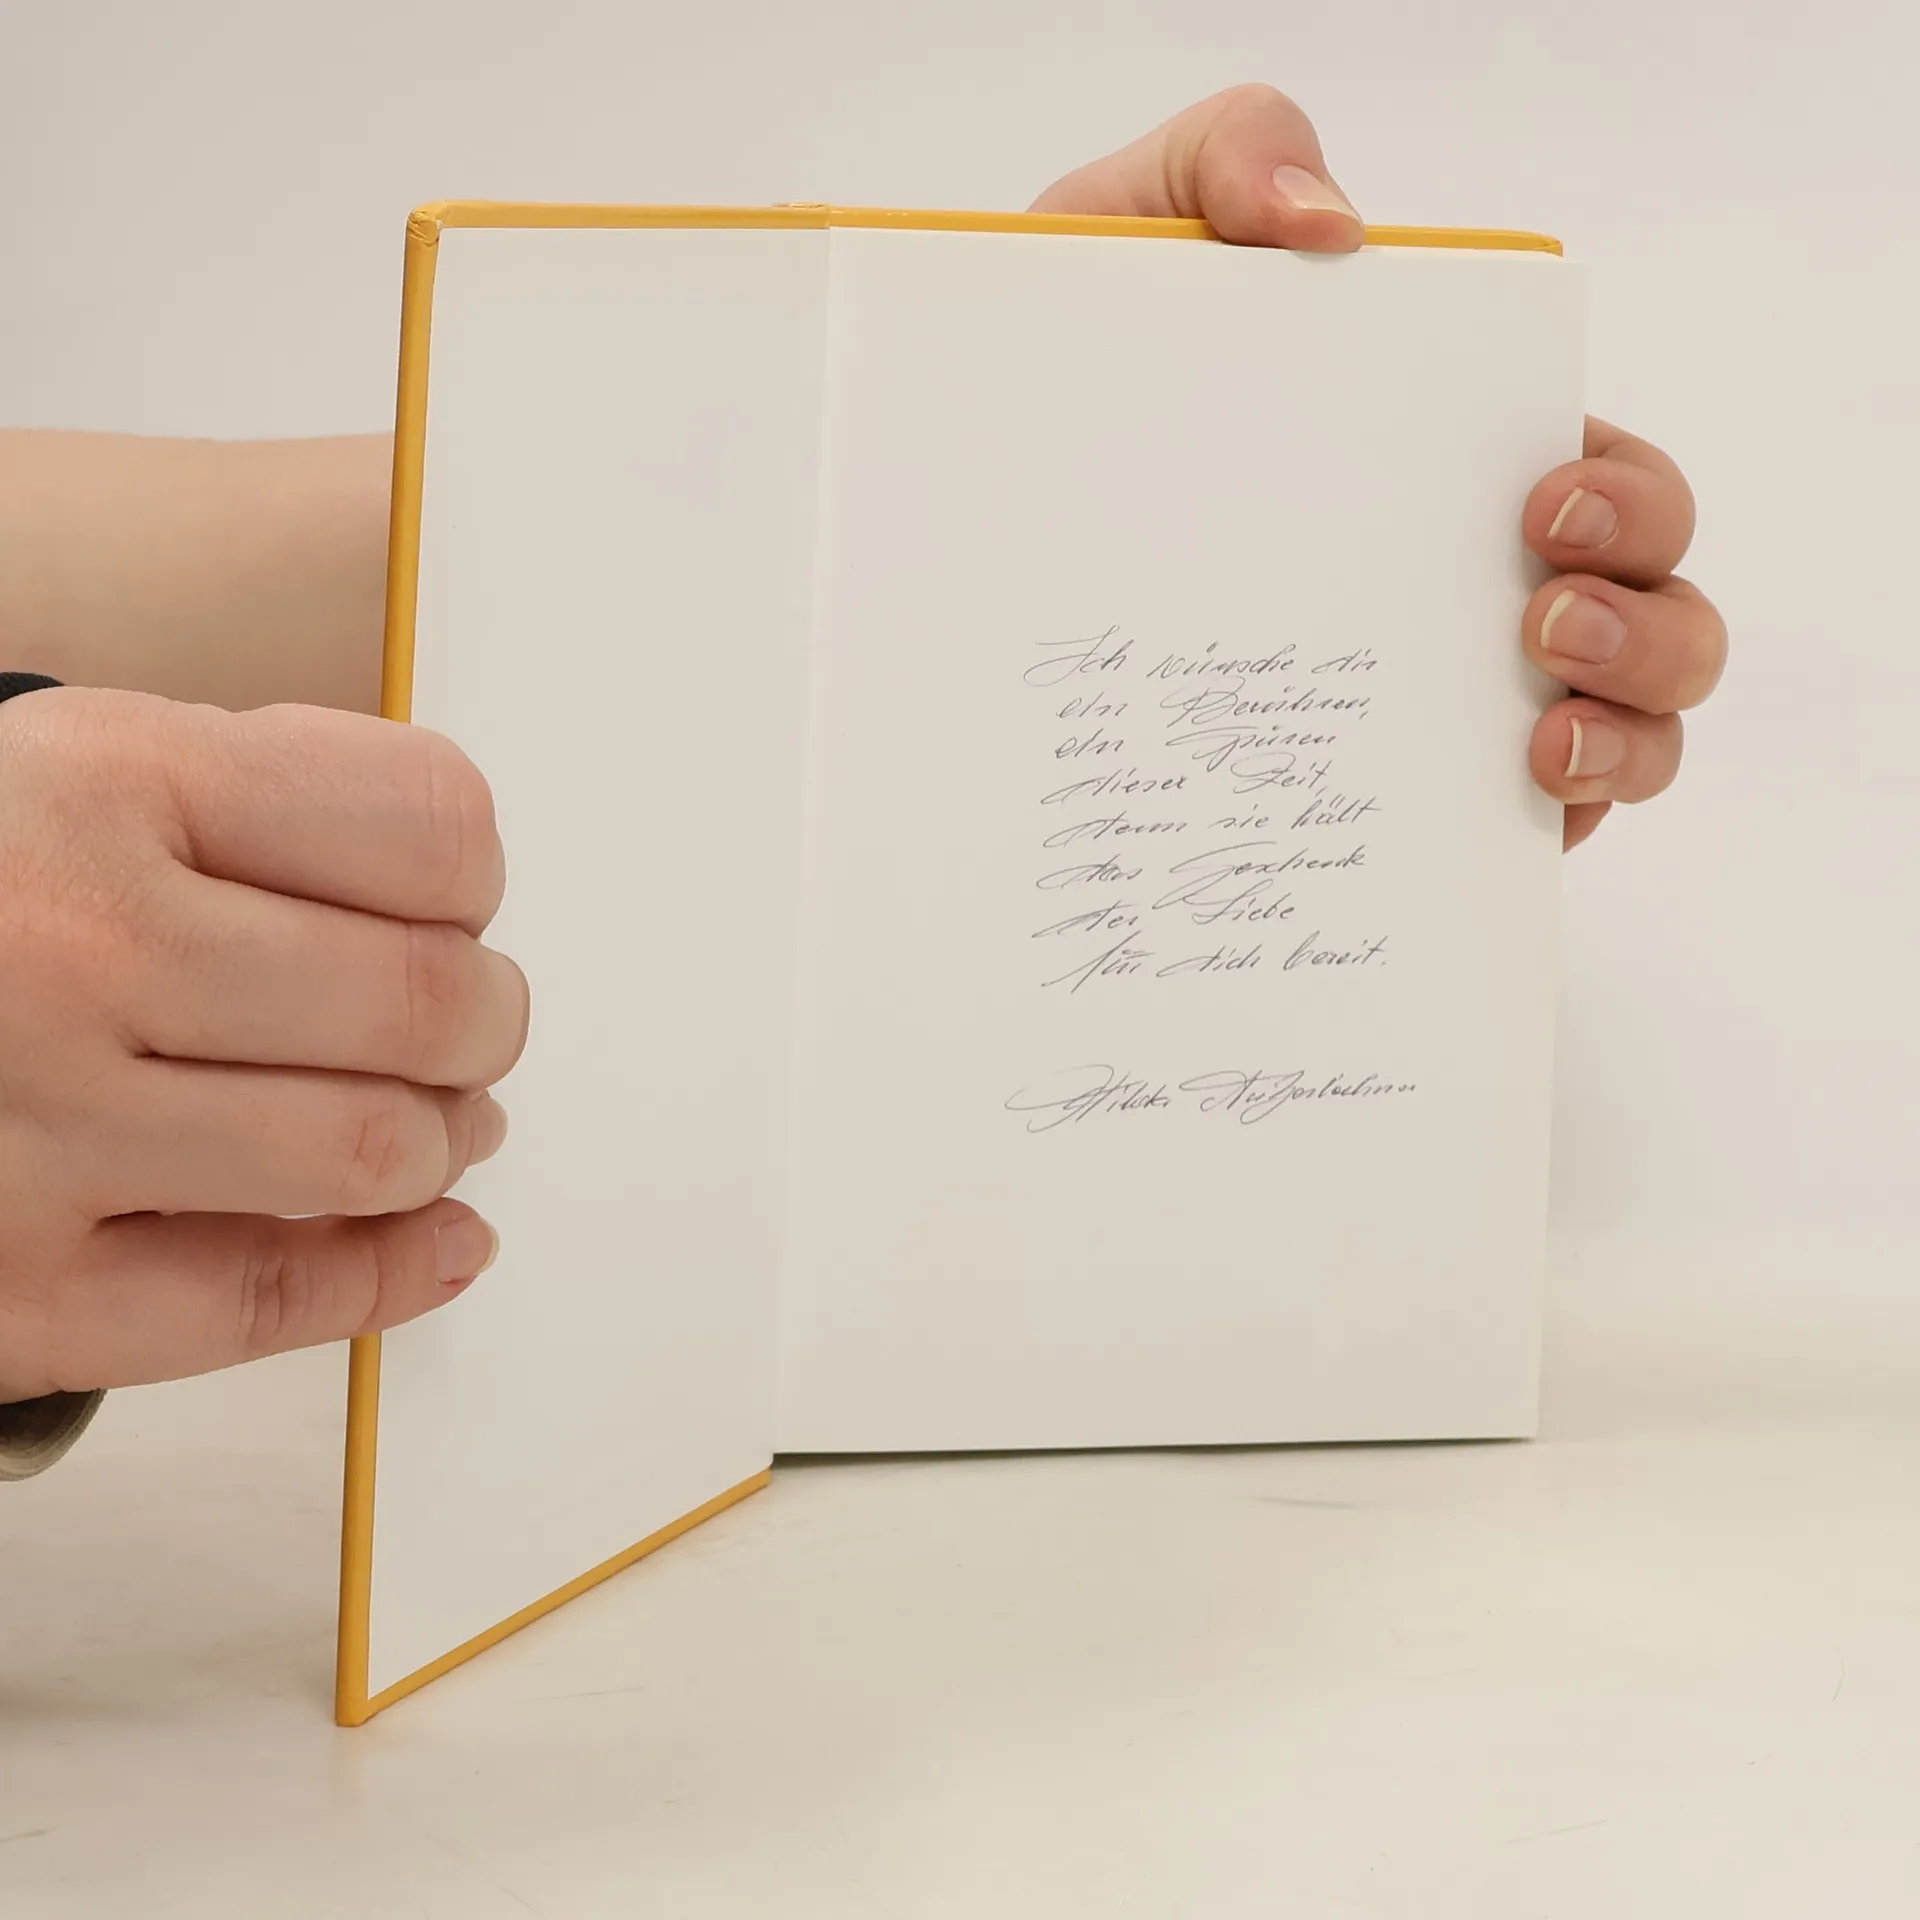 Ich wünsche dir
ein Berühren,
ein Spüren
dieser Zeit,
denn sie hält
das Geschenk
der Liebe
für dich bereit.
Hilda